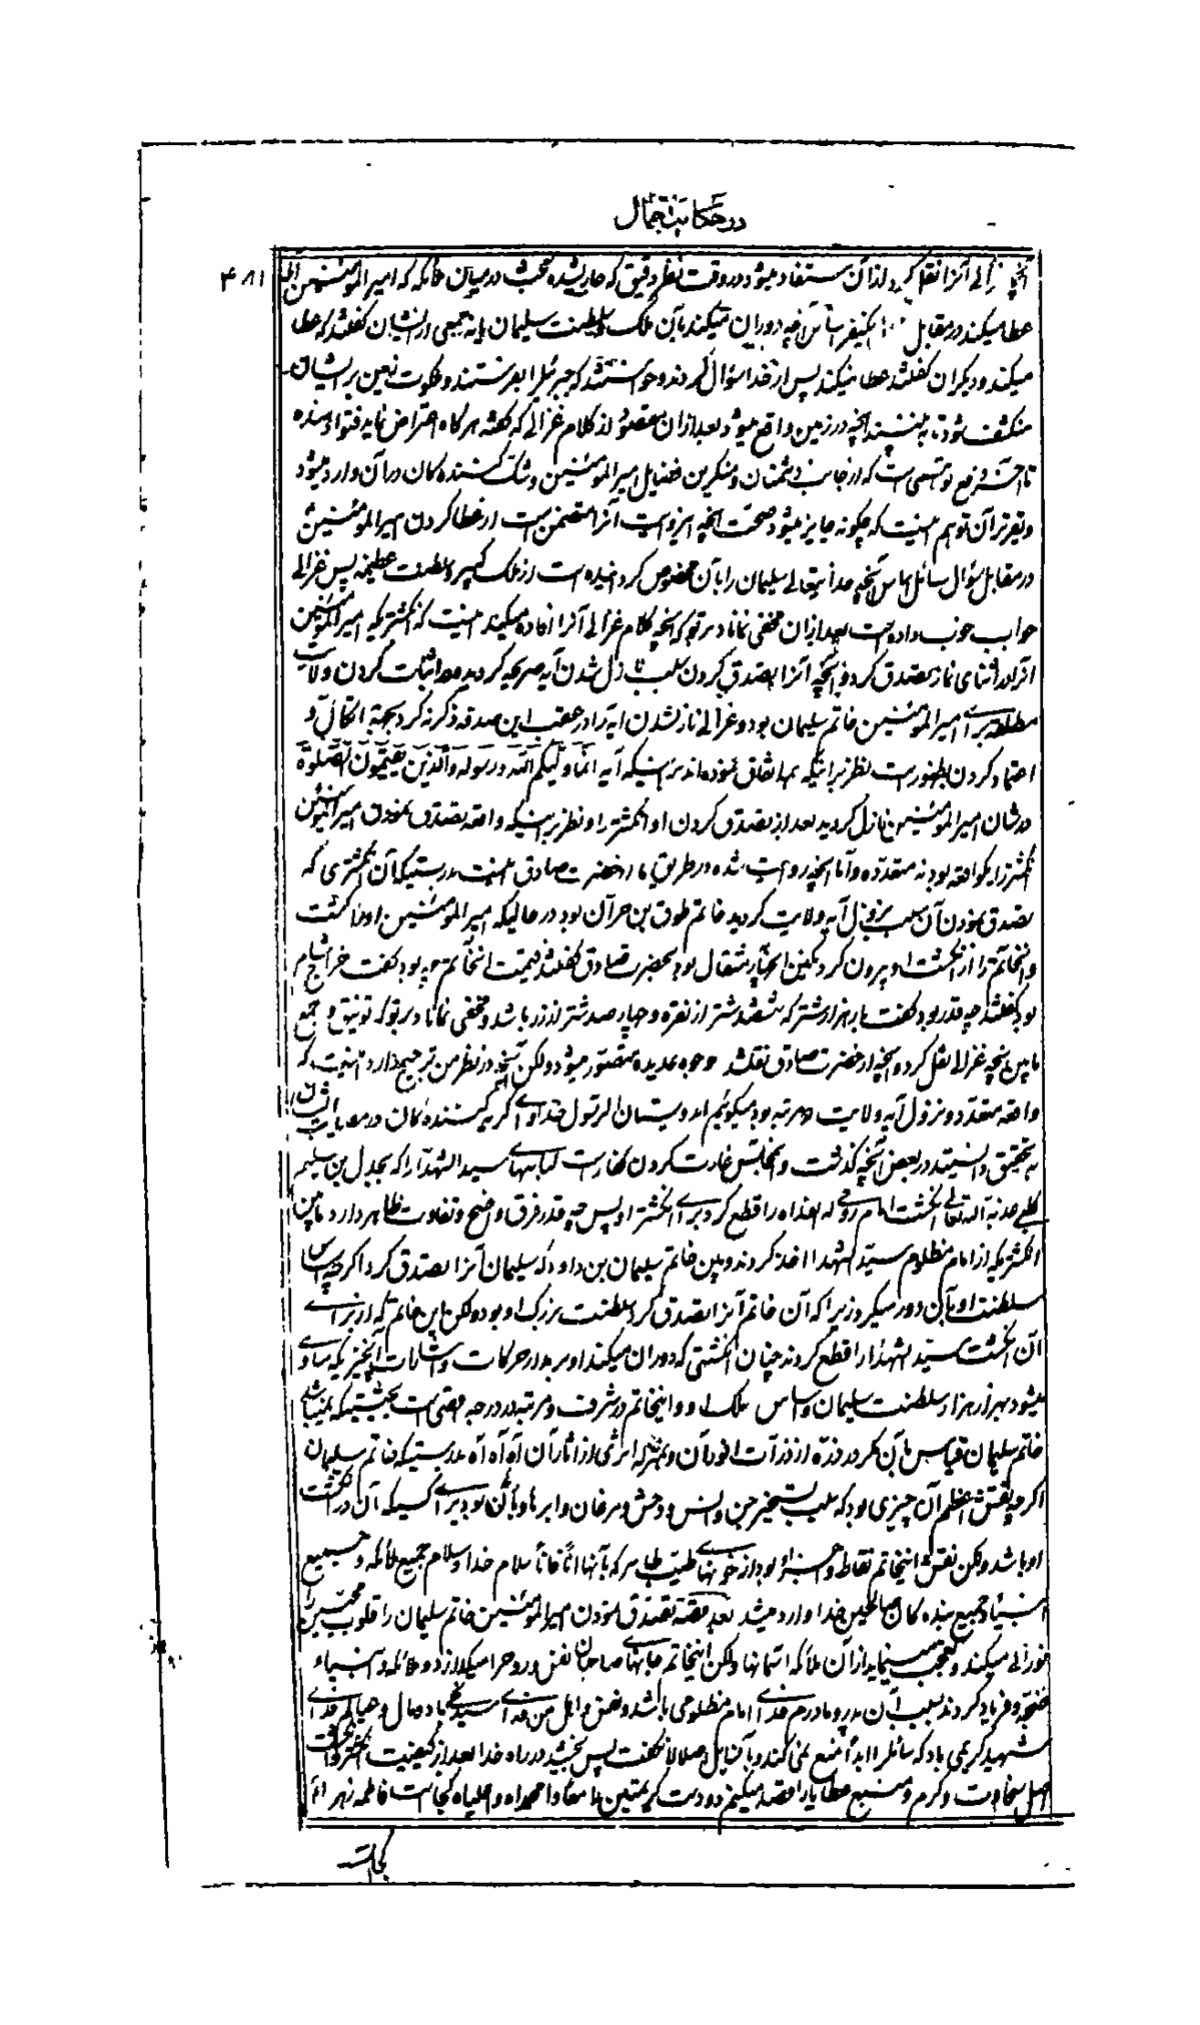 در حکایت جمال
۴۸۱
آنچه غزالی آنرا نقل کرد و از آن مستفاد میشود در وقت نظر دقیق که جاری شده بحث در میان ملائکه که امیرالمؤمنین
عطا میکند در مقابل اساس آنچه دوران میکند بآن ملک و سلطنت سلیمان یا نه جمعی از ایشان گفتند که عطا
میکند و دیگران گفتند عطا نمیکند پس از خدا سؤال کردند و خواستند که جبرئیل را بفرستند و ملکوت زمین بر ایشان
منکشف شود تا به بینند آنچه در زمین واقع میشود بعد از آن مقصود از کلام غزالی که گفته هر گاه اعتراض نماید
تا آخر دفع توهمی است که از جانب دشمنان و منکرین فضایل امیرالمؤمنین و شک کننده کان در آن وارد میشود
و تقریر آن توهم اینست که چگونه جایز میشود صحت آنچه این روایت آنرا متضمن است از عطا کردن امیرالمؤمنین
در مقابل سؤال سائل اساس آنچه خدایتعالی سلیمان را بآن مخصوص گردانیده است از ملک کبیر و سلطنت عظیمه پس غزالی
جواب خوب داده است بعد از آن مخفی نماناد بر تو که آنچه کلام غزالی آنرا افاده میکند اینست که انگشتریکه امیرالمؤمنین
آنرا در اثنای نماز تصدق کرد و آنچه آنرا تصدق کردن سبب نازل شدن آیه صریحه گردید در اثبات کردن ولایت
مطلقه برای امیرالمؤمنین خاتم سلیمان بود و غزالی نازلشدن آیه را در عقب این صدقه ذکر نه کرد بجهة اتکال و
اعتماد کردن بظهورست نظر بر اینکه همه اتفاق نموده اند بر اینکه آیه انما ولیکم الله و رسوله والذین یقیمون الصلوة
در شان امیرالمؤمنین نازل گردید بعد از تصدق کردن او انگشتر را و نظر بر اینکه واقعه تصدق نمودن امیرالمؤمنین
انگشتر را یکواقعه بود نه متعدده و اما آنچه روایت شده در طریق ما از حضرت صادق اینست بدرستیکه آن انگشتری که
تصدق نمودن آن سبب نزول آیه ولایت گردید خاتم طوق بن حران بود در حالیکه امیرالمؤمنین او را کشت
و آنخاتم را از انگشت او بیرون کرد نگین آن چهار مثقال بود بحضرت صادق گفتند قیمت آنخاتم چه بود گفت خراج شام
بود گفتند چه قدر بود گفت بار هزار شتر که ششصد شتر از نقره و چهار صد شتر از زر باشد و مخفی نماناد بر تو که توفیق و جمع
مابین آنچه غزالی نقل کرد و آنچه از حضرت صادق نقلشد وجوه عدیده متصور میشود و لکن آنچه در نظر من ترجیح دارد اینست که
واقعه متعدد و نزول آیه ولایت دو مرتبه بود میگوئیم ای دوستان آل رسول خدا و ای گریه کننده کان در مصایب
به تحقیق دانستید در بعض آنچه گذشت و مجالس غارت کردن کفار لباسهای سید الشهدا را که بجدل بن سلیم
کلبی عذبه الله تعالی انگشت امام روحی له الفداه را قطع کرد برای انگشتر او پس چه قدر فرق واضح و تفاوت ظاهر دارد مابین
انگشتریکه از امام مظلوم سید الشهدا اخذ کردند و بین خاتم سلیمان بن داود که سلیمان آنرا تصدق کرد اگر چه اساس
سلطنت او بآن دور میکرد زیرا که آن خاتم آنرا تصدق کرد سلطنت بزرگ او بود و لکن این خاتم که از برای
آن انگشت سید الشهدا را قطع کردند چنان انگشتی که دوران میکند او بر مدار حرکات و اشارات آنچیزیکه مساوی
میشود بهزار هزار سلطنت سلیمان و اساس ملک او و اینخاتم در شرف و مرتبه در درجه اقصی است بحیثیتیکه نمیباشد
خاتم سلیمان قیاس بآن مگر در ذره از ذرات نور آن و بمنزله اثری از آثار آن آه آه آه بدرستیکه خاتم سلیمان
اگر چه نقش اعظم آن چیزی بود که سبب تسخیر جن و انس و وحش و مرغان و ابر و باد بآن بود برای کسیکه آن در انگشت
او باشد و لکن نقش اینخاتم نقاط و اجزاء بود از خونهای طیب طاهر که بآنها آناً فآناً سلام خدا و سلام جمیع ملائکه و جمیع
انبیاء و جمیع بنده کان صالحین خدا وارد میشد بعد قصه تصدق نمودن امیرالمؤمنین خاتم سلیمان را قلوب محبین را
نورانی میکند و تعجب مینماید از آن ملائکه آسمانها و لکن اینخاتم جانهای صاحبان نفس و روح را میگدازد و ملائکه و انبیاء
ضجه و فریاد کردند بسبب آن پدر و مادرم فدای امام مظلومی باشد و نفس و اهل من فدای سیدی باد و مال و عیالم فدای
شهید کریمی باد که سائل را ابداً منع نمی کند و بآن سائل اصلا لا نگفت پس بخشید در راه خدا بعد از کیفیت
اصل سخاوت و کرم و منبع عطایا را قصد میکنم دو دست کریمتین وا محمداه وا علیاه کجاست فاطمه زهراء
کجاست